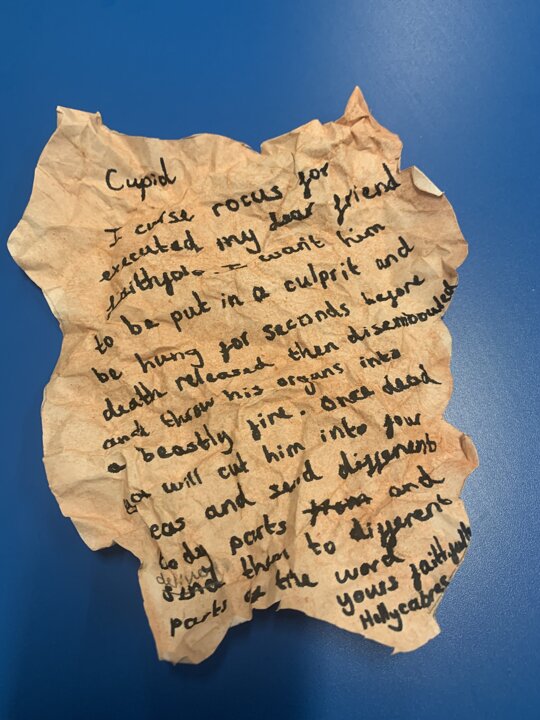 Cupid
I curse rocus for
executed my dear friend
I want him
to be put in a culprit and
be hung for seconds before
death released then disembouled
and throw his organs into
a beastly fire. Once dead
will cut him into four
eas and send different
parts and
send them to different
parts of the word
yours faithfully
Hollycabres